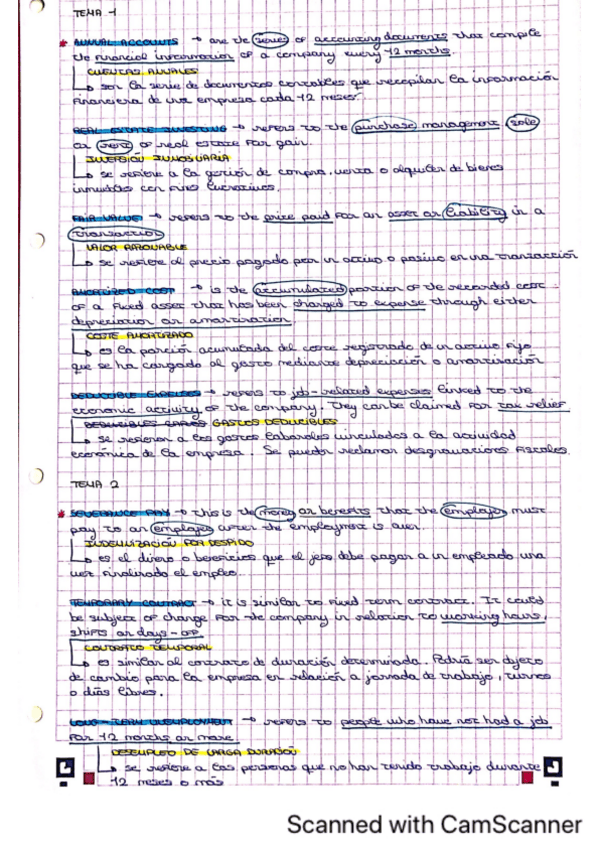 TEMA -1
* ANNUAL ACCOUNTS → are the series of accounting documents that compile
the financial information of a company every 12 months.
CUENTAS ANUALES
↳ son la serie de documentos contables que recopilan la información
financiera de una empresa cada 12 meses.
REAL ESTATE INVESTING → refers to the purchase management sale
or rent of real estate for gain.
INVERSIÓN INMOBILIARIA
↳ se refiere a la gestión de compra, venta o alquiler de bienes
inmuebles con fines lucrativos.
FAIR VALUE → refers to the price paid for an asset or liability in a
transaction
VALOR RAZONABLE
↳ se refiere al precio pagado por un activo o pasivo en una transacción
AMORTIZED COST → is the accumulated portion of the recorded cost
of a fixed asset that has been charged to expense through either
depreciation or amortization.
COSTE AMORTIZADO
↳ es la porción acumulada del coste registrado de un activo fijo
que se ha cargado al gasto mediante depreciación o amortización
DEDUCTIBLE EXPENSES → refers to job-related expenses linked to the
economic activity of the company. They can be claimed for tax relief
DEDUCIBLES GASTOS DEDUCIBLES
↳ se refieren a los gastos laborales vinculados a la actividad
económica de la empresa. Se pueden reclamar desgravaciones fiscales.
TEMA 2
* SEVERANCE PAY → this is the money or benefits that the employer must
pay to an employee after the employment is over.
INDEMNIZACIÓN POR DESPIDO
↳ es el dinero o beneficios que el jefe debe pagar a un empleado una
vez finalizado el empleo.
TEMPORARY CONTRACT → it is similar to fixed term contract. It could
be subject of change for the company in relation to working hours,
shifts or days-off
CONTRATO TEMPORAL
↳ es similar al contrato de duración determinada. Podría ser objeto
de cambio para la empresa en relación a jornada de trabajo, turnos
o días libres.
LONG-TERM UNEMPLOYMENT → refers to people who have not had a job
for 12 months or more
DESEMPLEO DE LARGA DURACIÓN
↳ se refiere a las personas que no han tenido trabajo durante
12 meses o más
Scanned with CamScanner